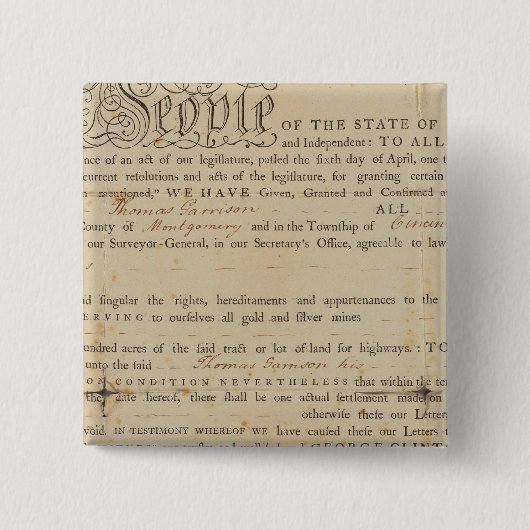 People
OF THE STATE OF
and Independent: TO ALL
nce of an act of our legiſlature, paſſed the ſixth day of April, one t
current reſolutions and acts of the legiſlature, for granting certain
n mentioned," WE HAVE Given, Granted and Confirmed a
Thomas Garrison ALL
County of Montgomery and in the Townſhip of Cincin
our Surveyor-General, in our Secretary's Office, agreeable to law
s
nd ſingular the rights, hereditaments and appurtenances to the
ERVING to ourſelves all gold and ſilver mines
undred acres of the ſaid tract or lot of land for highways. : TO
unto the ſaid Thomas Garrison his
ON CONDITION NEVERTHELESS that within the te
the date hereof, there ſhall be one actual ſettlement made on
otherwiſe theſe our Letters
void. IN TESTIMONY WHEREOF WE have cauſed theſe our Letters t
GEORGE CLINT